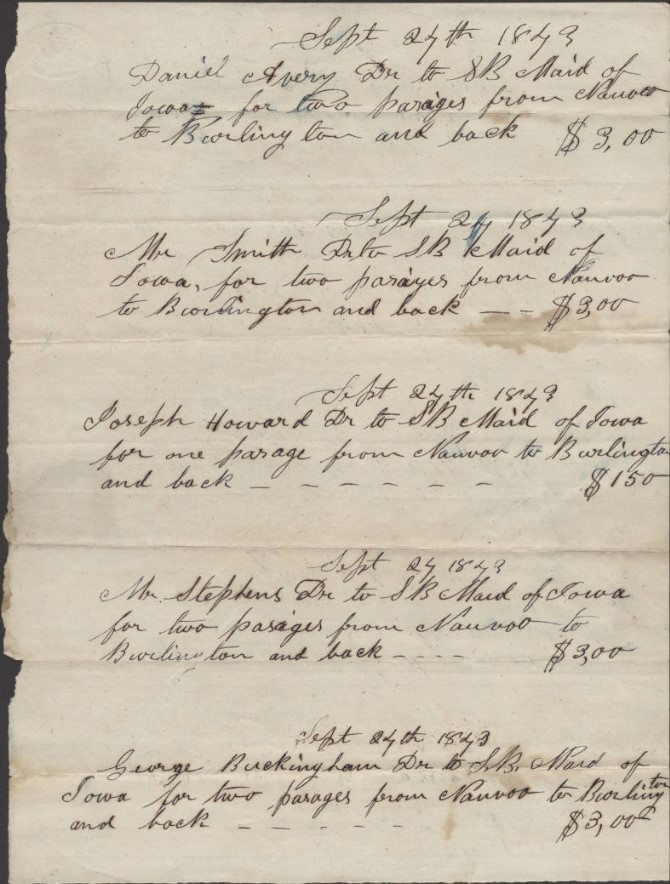 Sept 27th 1843
Daniel Avery Dr to SB Maid of
Iowa for two parages from Nauvoo
to Burlington and back $3,00
Sept 27 1843
Mr Smith Dr to SB Maid of
Iowa, for two parages from Nauvoo
to Burlington and back – – $3,00
Sept 27th 1843
Joseph Howard Dr to SB Maid of Iowa
for one parage from Nauvoo to Burlington
and back – – – – – – $150
Sept 27 1843
Mr. Stephens Dr to SB Maid of Iowa
for two parages from Nauvoo to
Burlington and back – – – – $3,00
Sept 27th 1843
George Buckingham Dr to S.B. Maid of
Iowa for two parages from Nauvoo to Burlington
and back – – – – – $3,00